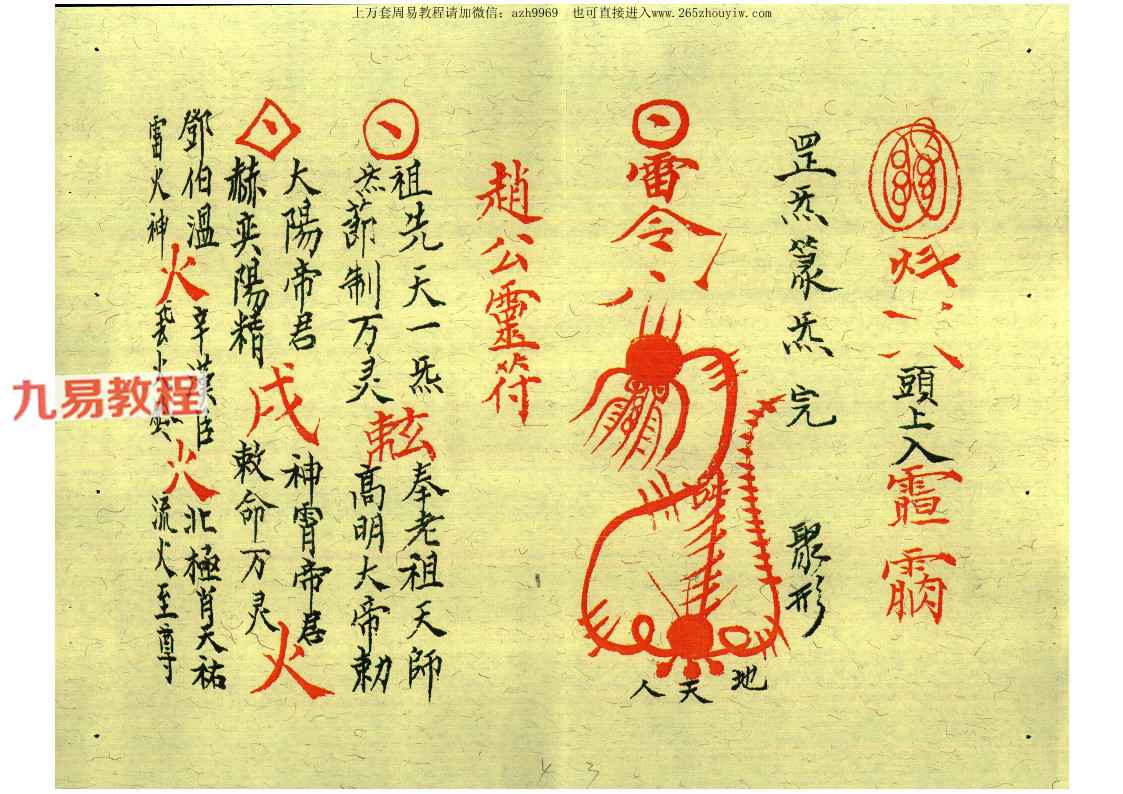 上万套周易教程请加微信：azh9969　也可直接进入www.265zhouyiw.com
頭上入
罡炁篆炁完　聚形
雷令
人天地
趙公靈符
祖先天一炁　奉老祖天師
制万灵　高明大帝勅
大陽帝君　神霄帝君
赫奕陽精　敕命万灵
戌
火
鄧伯溫　辛漢臣　北極肖天祐
雷火神　流火至尊
火
火
九易教程